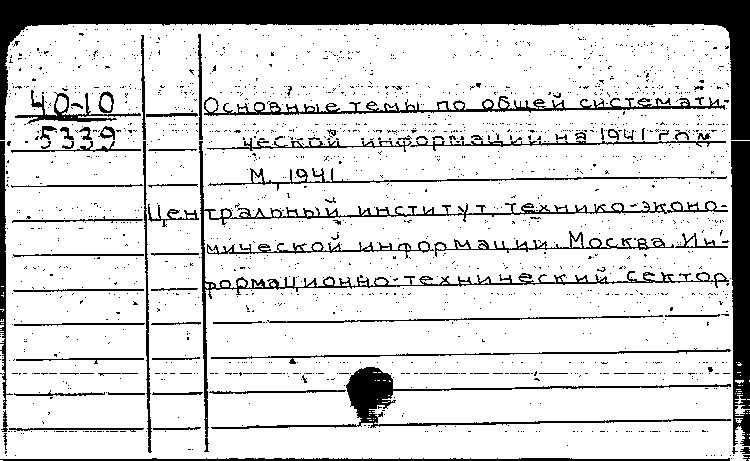 40-10
5339
Основные темы по общей системати-
ческой информации на 1941 год
М., 1941
Центральный институт технико-эконо-
мической информации. Москва. Ин-
формационно-технический сектор